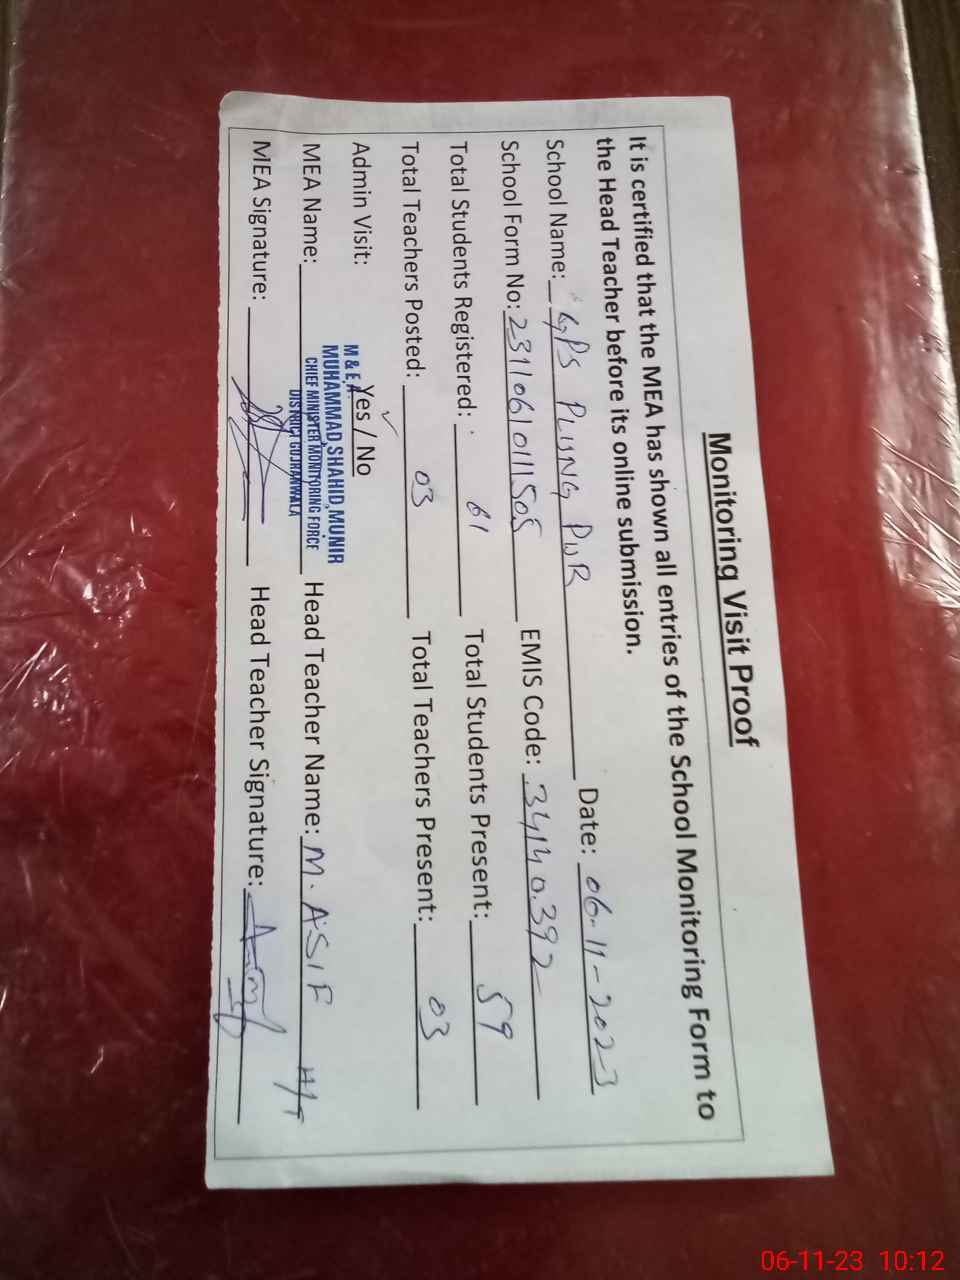 Monitoring Visit Proof
It is certified that the MEA has shown all entries of the School Monitoring Form to
the Head Teacher before its online submission.
School Name: GPS PLUNG PUR Date: 06-11-2023
School Form No: 23110610111505 EMIS Code: 34140392
Total Students Registered: 61 Total Students Present: 59
Total Teachers Posted: 03 Total Teachers Present: 03
Admin Visit: Yes / No
M & E.A
MUHAMMAD SHAHID MUNIR
CHIEF MINISTER MONITORING FORCE
DISTRICT GUJRANWALA
MEA Name: Head Teacher Name: M. ASIF H/T
MEA Signature: Head Teacher Signature:
06-11-23 10:12